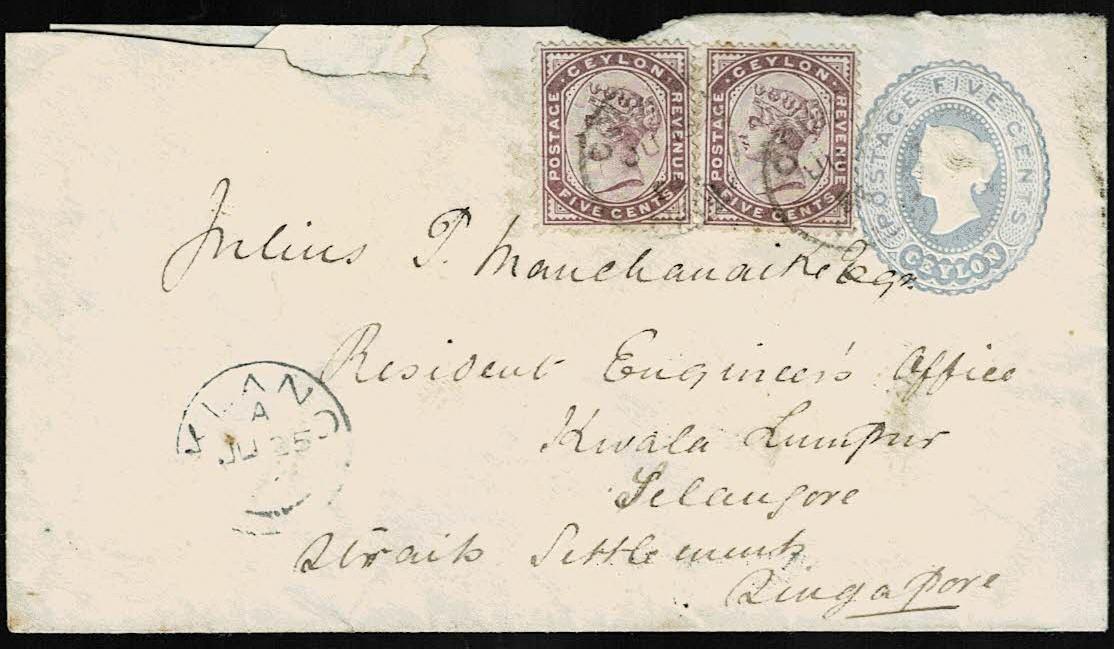 CEYLON
POSTAGE
REVENUE
FIVE CENTS
CEYLON
POSTAGE
REVENUE
FIVE CENTS
POSTAGE FIVE CENTS
CEYLON
Julius P. Manchanaike Esqr.
Resident Engineer's Office
Kwala Lumpur
Selangore
Straits Settlements
Singapore
A
JU 25